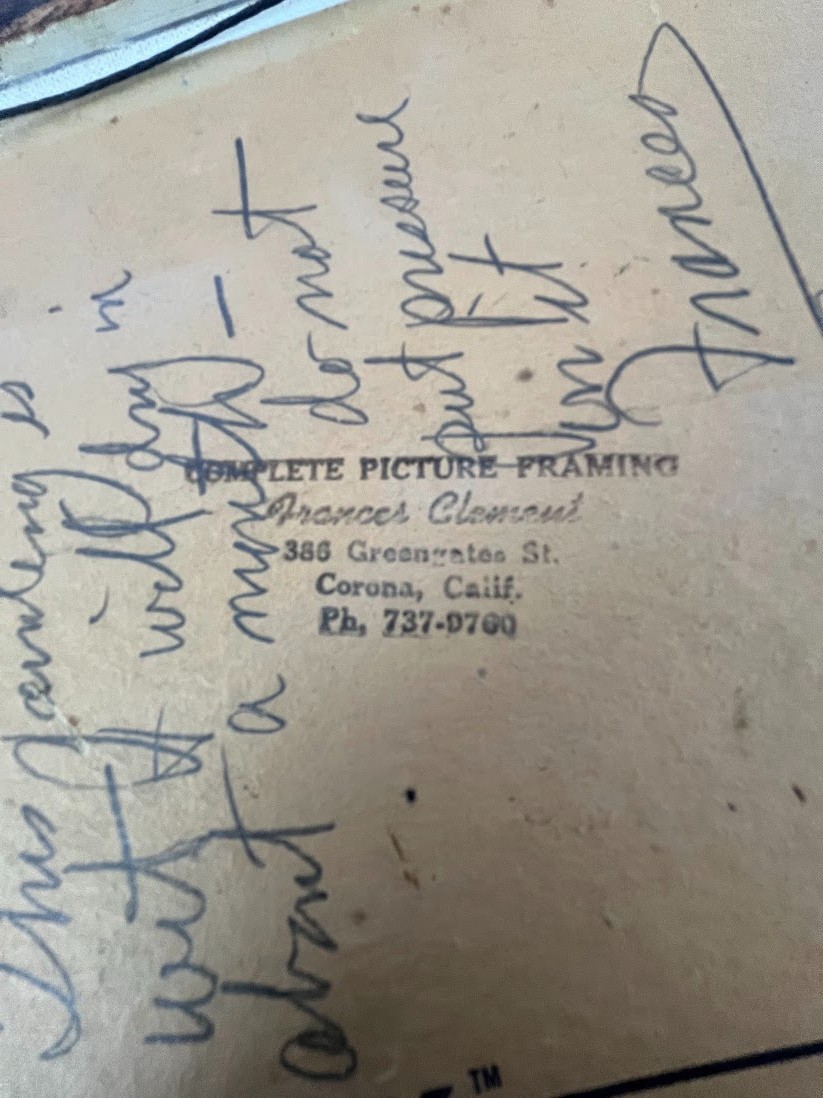 This painting is
wet it will dry in
about a month —
do not
put pressure
on it
Frances
COMPLETE PICTURE FRAMING
Frances Clement
386 Greengates St.
Corona, Calif.
Ph, 737-0760
TM